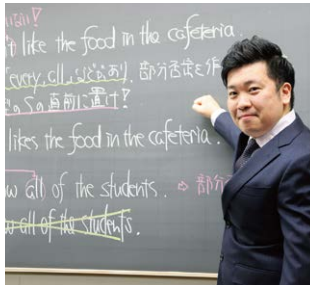 いない!
't like the food in the cafeteria.
every, all などあり、部分否定を作
の直前に置け!
likes the food in the cafeteria.
w all of the students. ⇒ 部分
w all of the students.